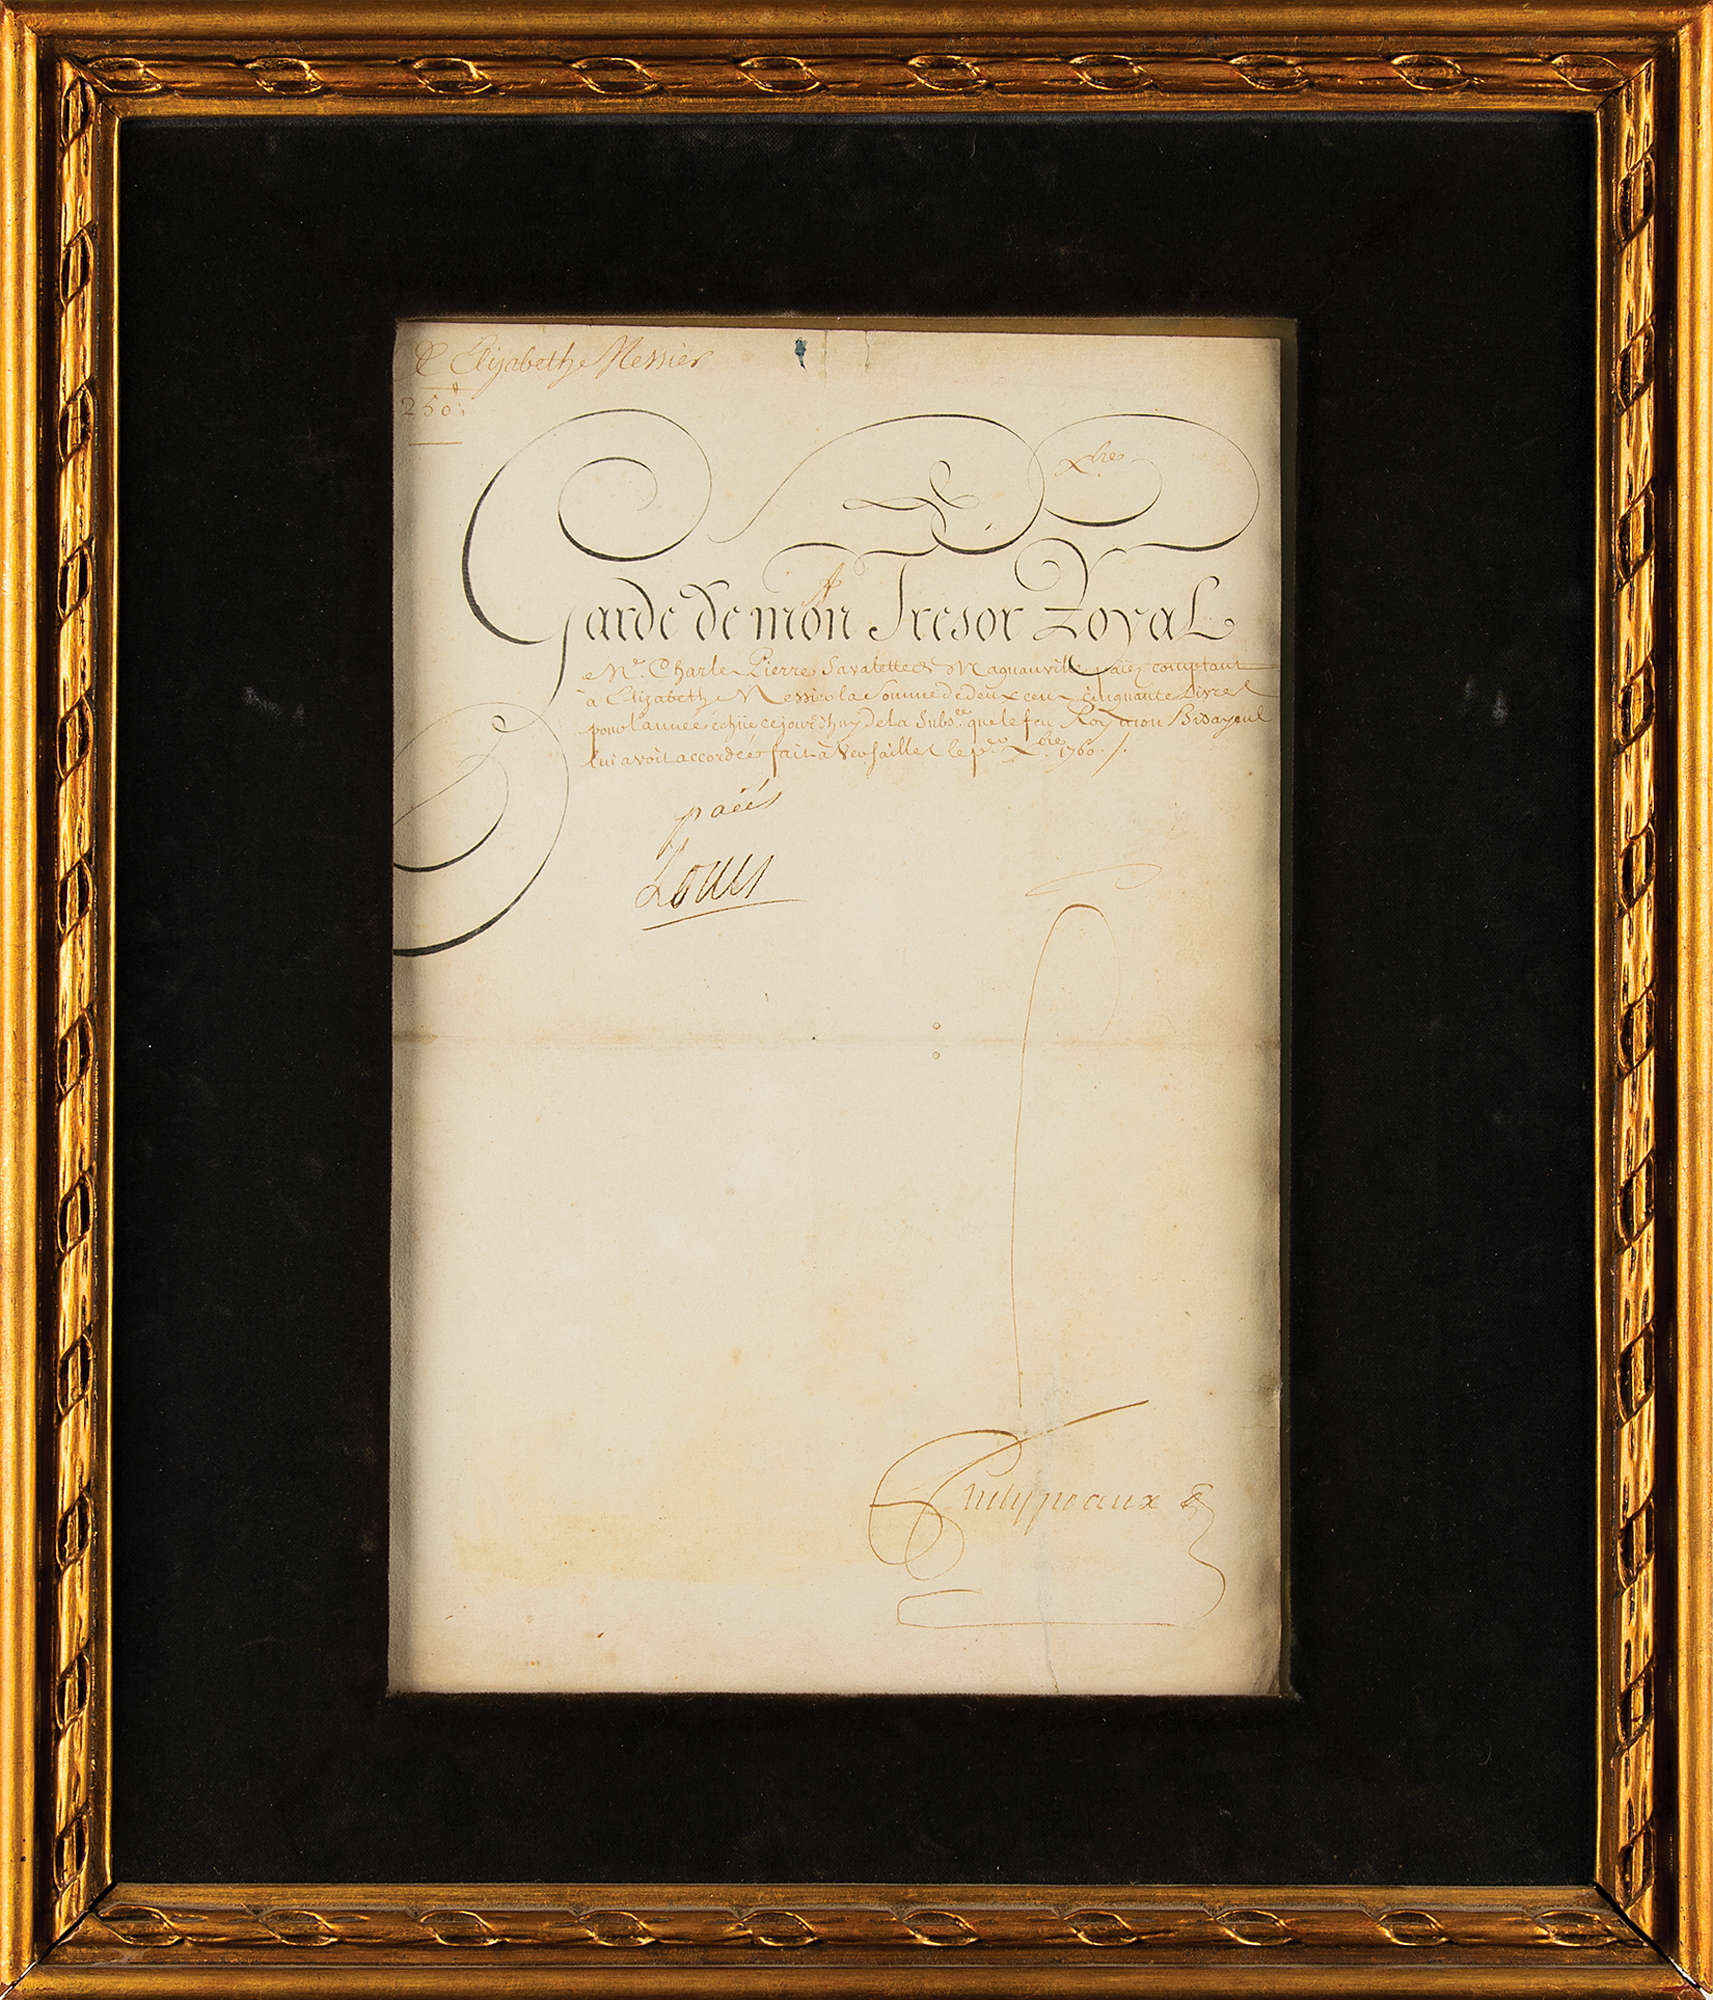 Elizabeth Messier
250#
Xbre
Garde de mon Tresor Royal
Me. Charles Pierre Savalette de Magnanville, païez comptant
à Elizabeth Messier la Somme de deux cens cinquante Livres
pour l'année échüe cejourd'huy de la Subs.ce que le feu Roy mon Bisayeul
lui avoit accordée, fait à Versailles le pr. Xbre 1760 ./.
païés
Louis
Phelypeaux